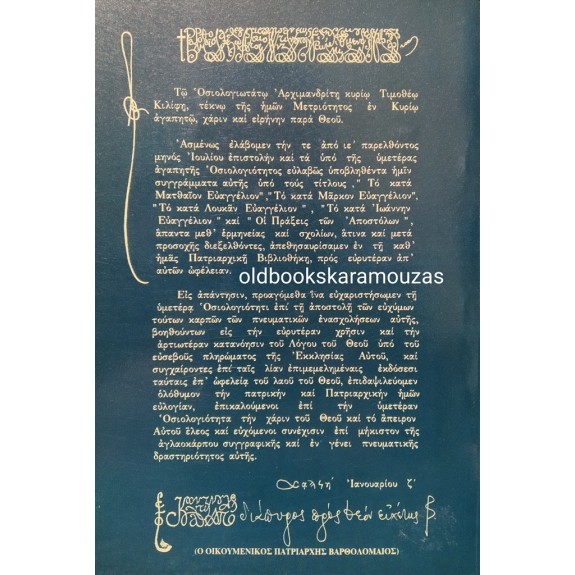 Τῷ Ὁσιολογιωτάτῳ Ἀρχιμανδρίτῃ κυρίῳ Τιμοθέῳ
Κιλίφῃ, τέκνῳ τῆς ἡμῶν Μετριότητος ἐν Κυρίῳ
ἀγαπητῷ, χάριν καί εἰρήνην παρά Θεοῦ.
Ἀσμένως ἐλάβομεν τήν τε ἀπό ιε΄ παρελθόντος
μηνός Ἰουλίου ἐπιστολήν καί τά ὑπό τῆς ὑμετέρας
ἀγαπητῆς Ὁσιολογιότητος εὐλαβῶς ὑποβληθέντα ἡμῖν
συγγράμματα αὐτῆς ὑπό τούς τίτλους," Τό κατά
Ματθαῖον Εὐαγγέλιον","Τό κατά Μᾶρκον Εὐαγγέλιον".
"Τό κατά Λουκᾶν Εὐαγγέλιον" , "Τό κατά Ἰωάννην
Εὐαγγέλιον " καί " Οἱ Πράξεις τῶν Ἀποστόλων " ,
ἅπαντα μεθ᾽ ἑρμηνείας καί σχολίων, ἅτινα καί μετά
προσοχῆς διεξελθόντες, ἀπεθησαυρίσαμεν ἐν τῇ καθ᾽
ἡμᾶς Πατριαρχικῇ Βιβλιοθήκῃ, πρός εὐρυτέραν ἀπ᾽
αὐτῶν ὠφέλειαν.
oldbookskaramouzas
Εἰς ἀπάντησιν, προαγόμεθα ἵνα εὐχαριστήσωμεν τῇ
ὑμετέρᾳ Ὁσιολογιότητι ἐπί τῇ ἀποστολῇ τῶν εὐχύμων
τούτων καρπῶν τῶν πνευματικῶν ἐνασχολήσεων αὐτῆς,
βοηθούντων εἰς τήν εὐρυτέραν χρῆσιν καί τήν
ἀρτιωτέραν κατανόησιν τοῦ Λόγου τοῦ Θεοῦ ὑπό τοῦ
εὐσεβοῦς πληρώματος τῆς Ἐκκλησίας Αὐτοῦ, καί
συγχαίροντες ἐπί ταῖς λίαν ἐπιμεμελημέναις ἐκδόσεσι
ταύταις ἐπ᾽ ὠφελείᾳ τοῦ λαοῦ τοῦ Θεοῦ, ἐπιδαψιλεύομεν
ὁλόθυμον τήν πατρικήν καί Πατριαρχικήν ἡμῶν
εὐλογίαν, ἐπικαλούμενοι ἐπί τήν ὑμετέραν
Ὁσιολογιότητα τήν χάριν τοῦ Θεοῦ καί τό ἄπειρον
Αὐτοῦ ἔλεος καί εὐχόμενοι συνέχισιν ἐπί μήκιστον τῆς
ἀγλαοκάρπου συγγραφικῆς καί ἐν γένει πνευματικῆς
δραστηριότητος αὐτῆς.
Ἰανουαρίου ζ΄
διάπυρος πρός Θεόν εὐχέτης
(Ο ΟΙΚΟΥΜΕΝΙΚΟΣ ΠΑΤΡΙΑΡΧΗΣ ΒΑΡΘΟΛΟΜΑΙΟΣ)